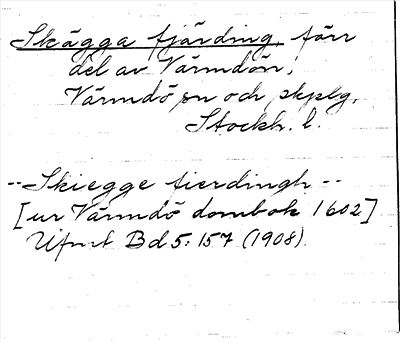 Skägga fjärding, förr
del av Värmdön,
Värmdö sn och skplg,
Stockh. l.
--Skiegge fierdingh--
[ur Värmdö dombok 1602]
Ufmt Bd 5: 157 (1908).